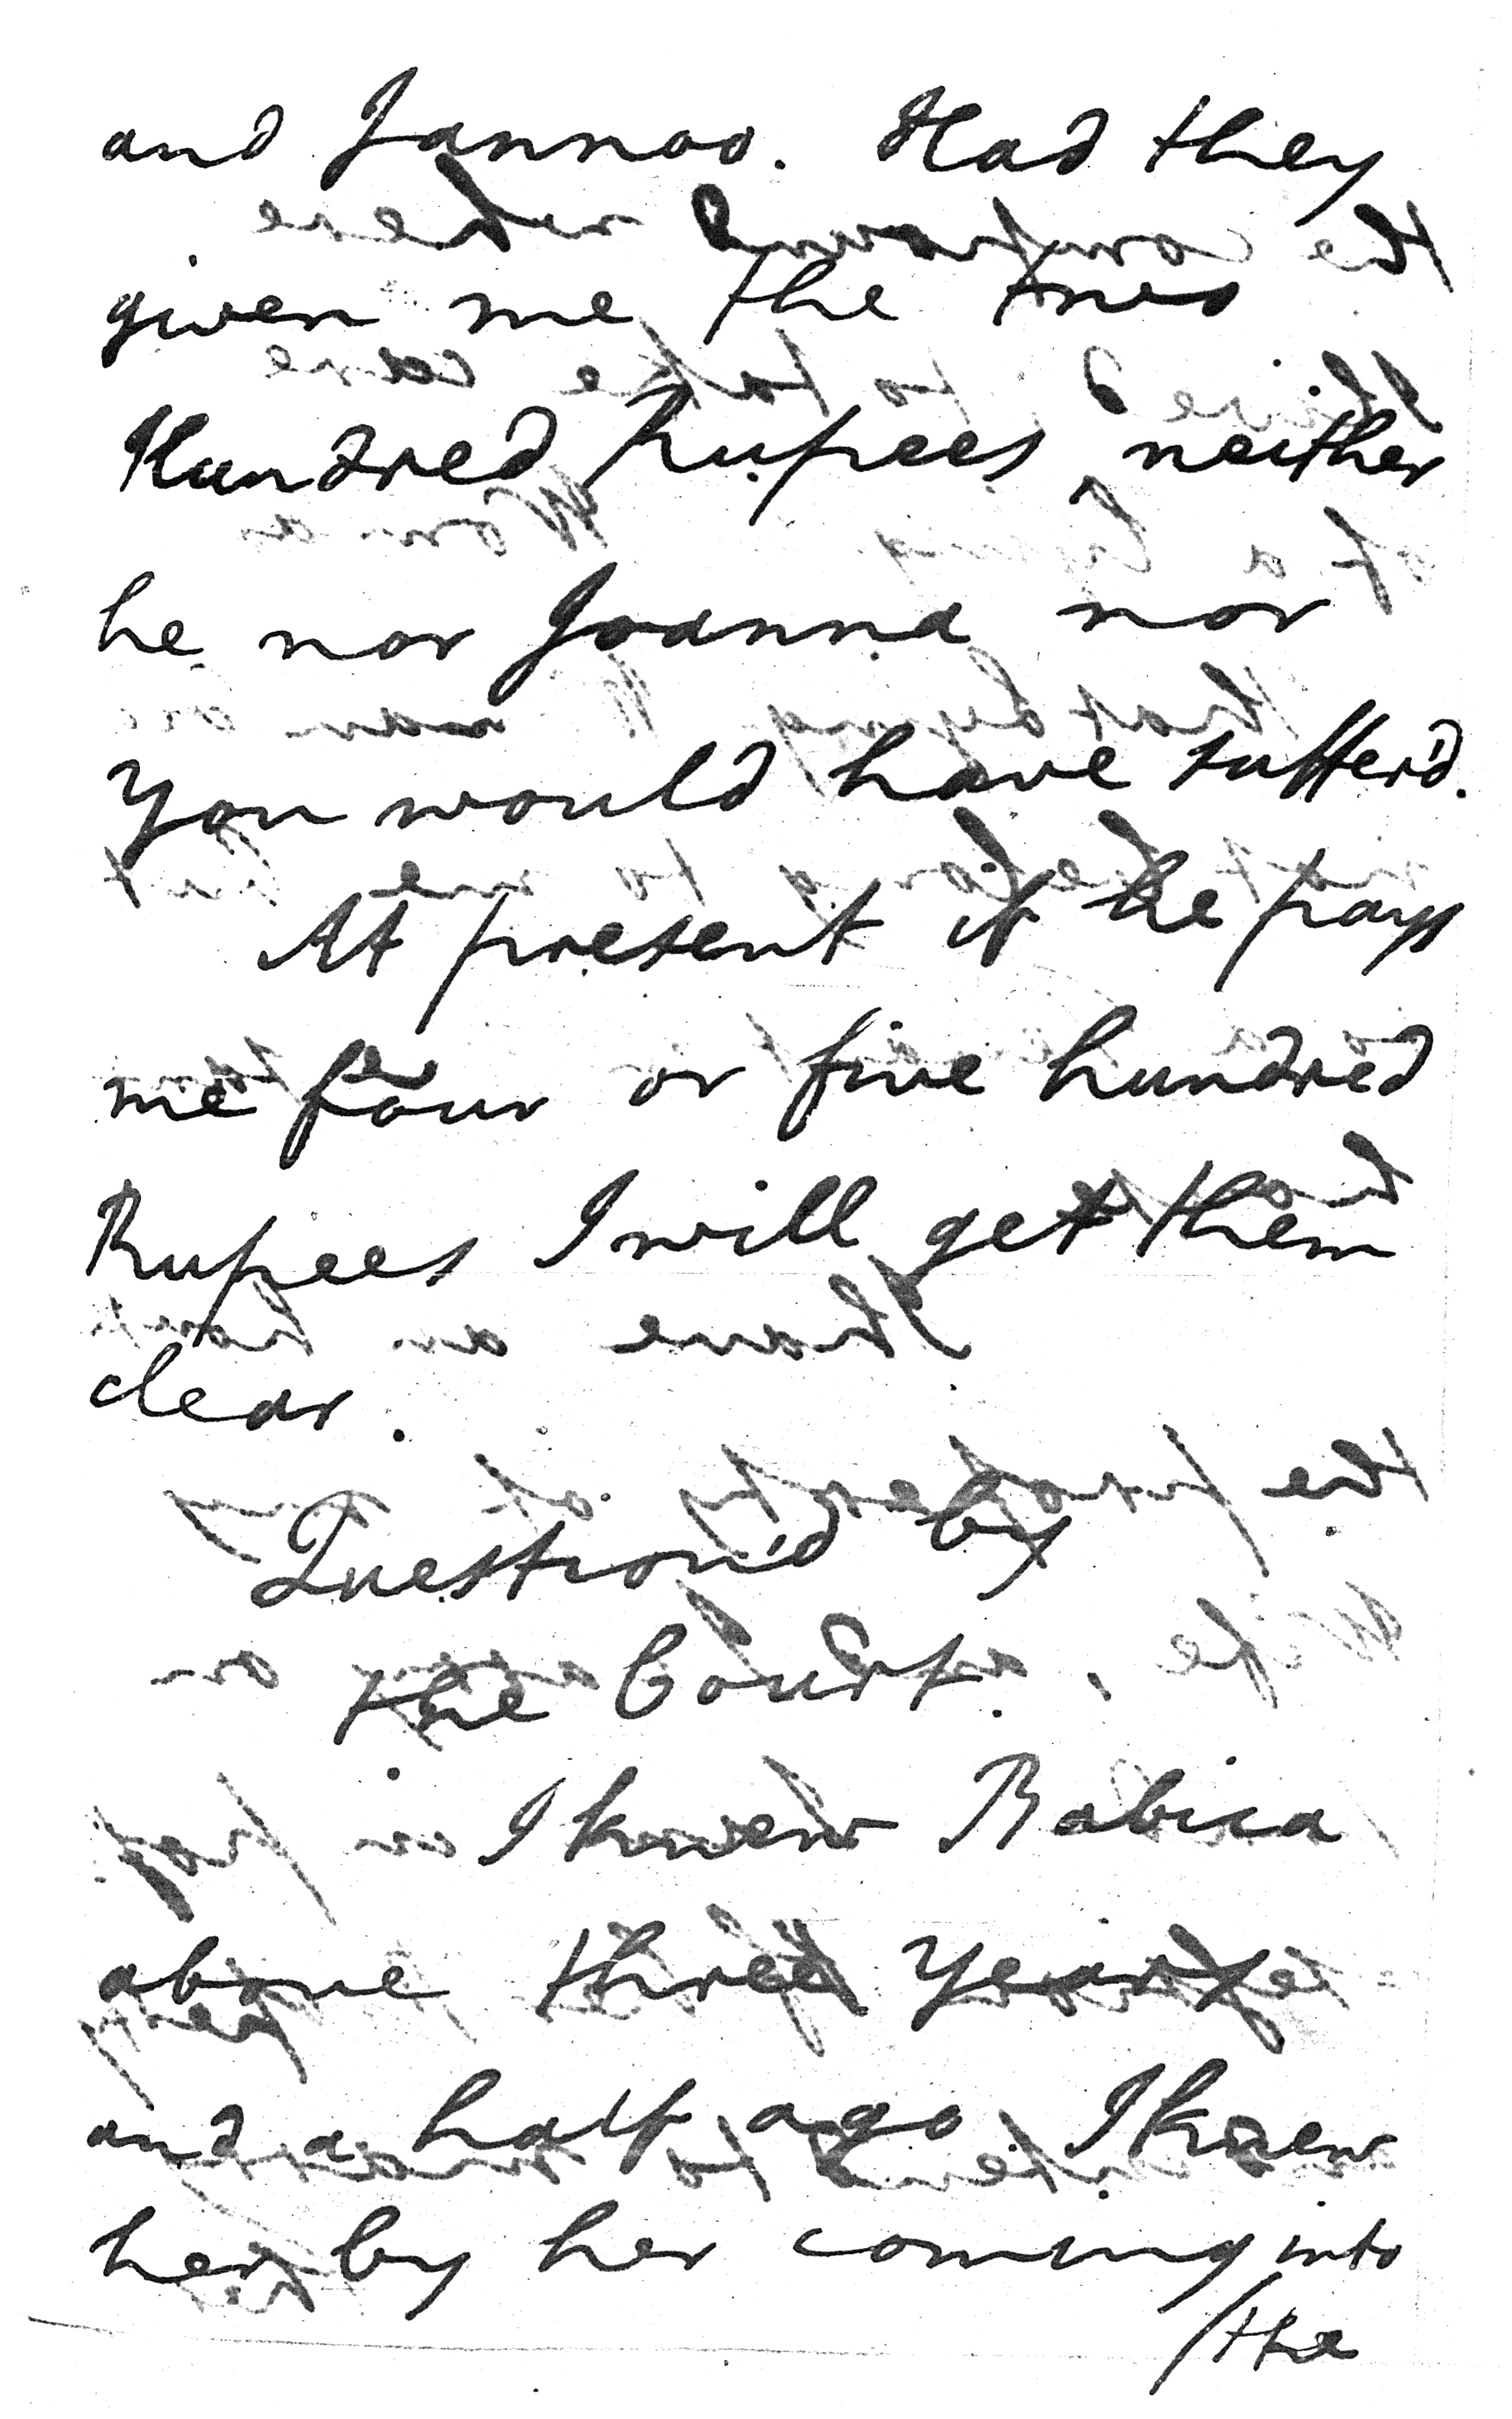 and Jannoo. Had they
given me the two
Hundred Rupees neither
he nor Joanna nor
You would have suffer'd.
At present if he pays
me four or five hundred
Rupees I will get them
clear.
Question'd by
the Court.
I knew Rabica
above three Years
and a half ago. I knew
her by her coming into
/the